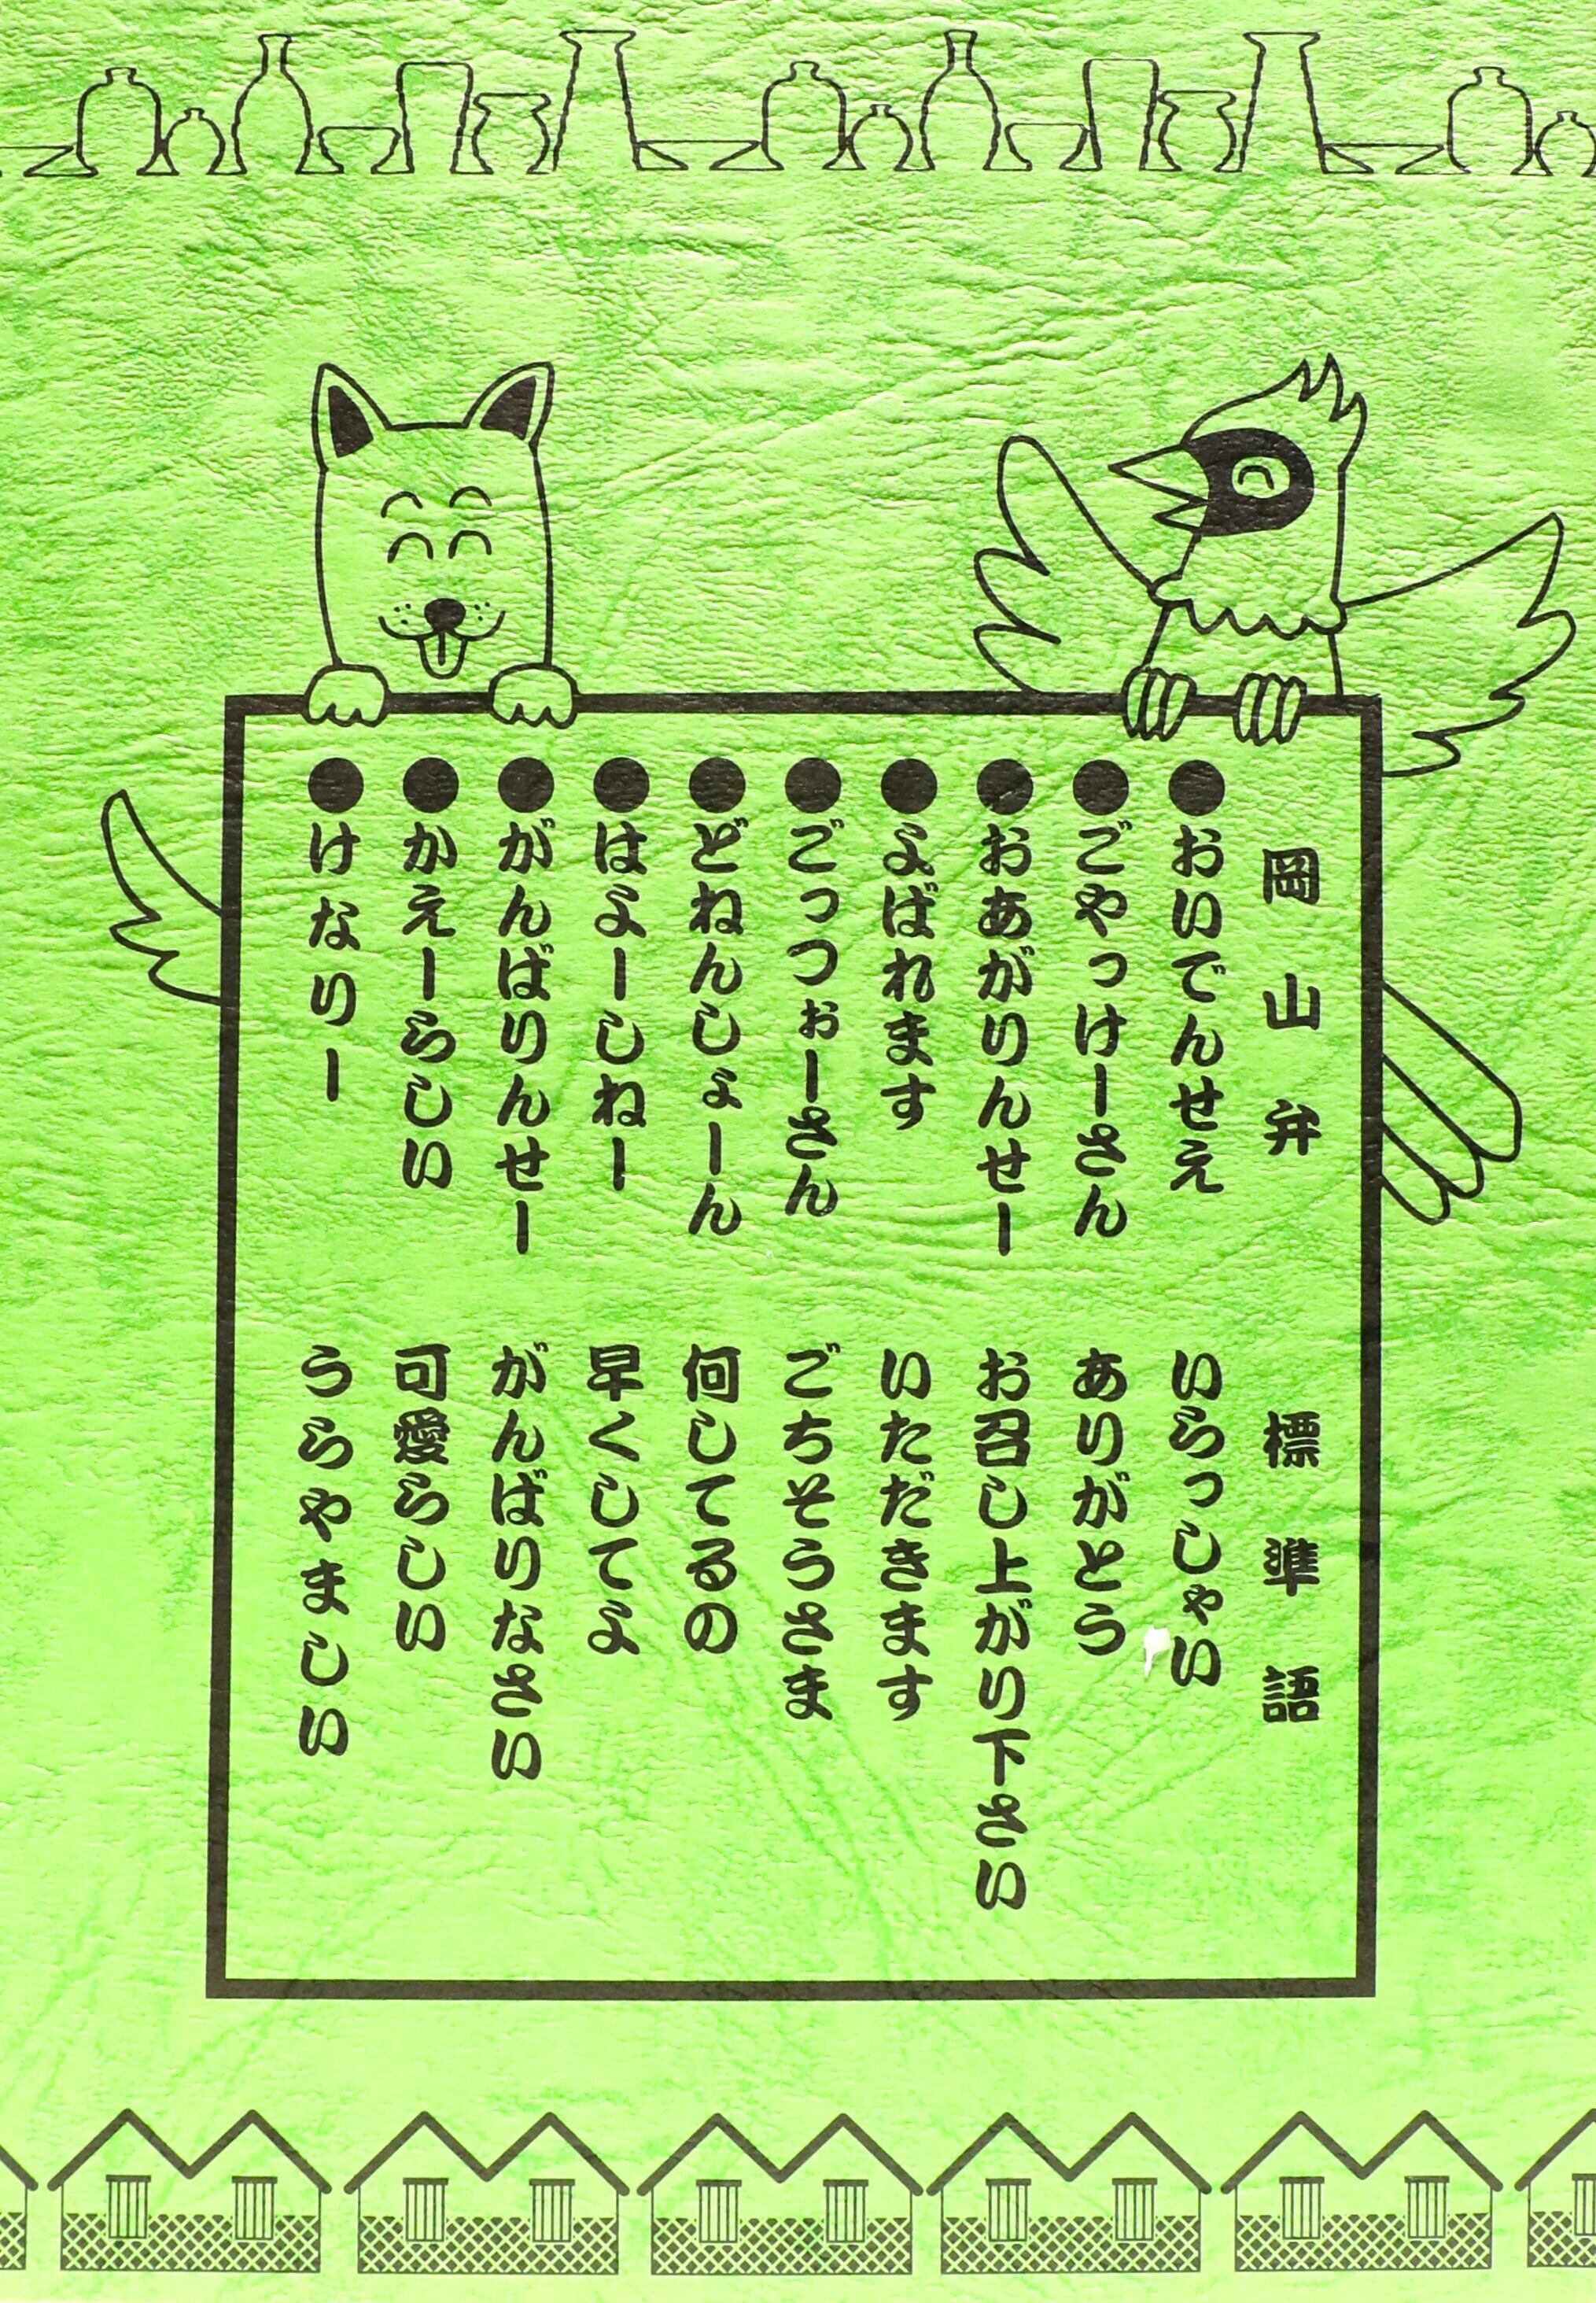 岡山弁 標準語
●おいでんせえ いらっしゃい
●ごやっけーさん ありがとう
●おあがりんせー お召し上がり下さい
●よばれます いただきます
●ごっつぉーさん ごちそうさま
●どねんしょーん 何してるの
●はよーしねー 早くしてよ
●がんばりんせー がんばりなさい
●かえーらしい 可愛らしい
●けなりー うらやましい